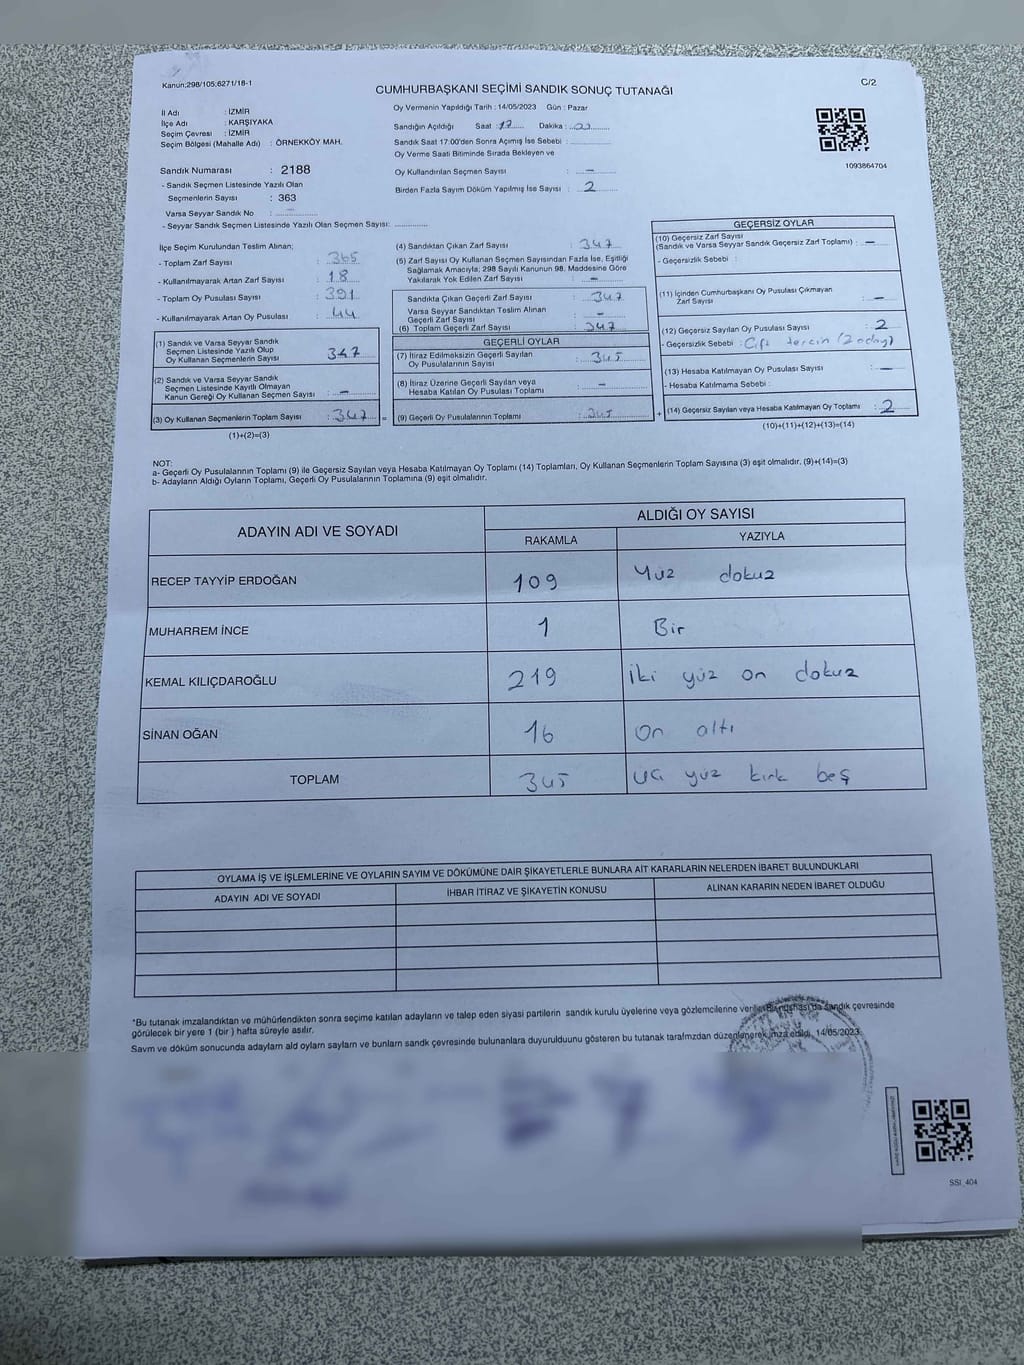 Kanun:298/105;6271/18-1
C/2
CUMHURBAŞKANI SEÇİMİ SANDIK SONUÇ TUTANAĞI
Oy Vermenin Yapıldığı Tarih : 14/05/2023 Gün : Pazar
İl Adı : İZMİR
İlçe Adı : KARŞIYAKA
Seçim Çevresi : İZMİR
Seçim Bölgesi (Mahalle Adı) : ÖRNEKKÖY MAH.
Sandığın Açıldığı Saat :17...... Dakika :
Sandık Saat 17:00'den Sonra Açımış İse Sebebi :
Oy Verme Saati Bitiminde Sırada Bekleyen ve
Oy Kullandırılan Seçmen Sayısı : –
Birden Fazla Sayım Döküm Yapılmış İse Sayısı : 2
1093864704
Sandık Numarası : 2188
- Sandık Seçmen Listesinde Yazılı Olan
Seçmenlerin Sayısı : 363
Varsa Seyyar Sandık No : –
- Seyyar Sandık Seçmen Listesinde Yazılı Olan Seçmen Sayısı:
İlçe Seçim Kurulundan Teslim Alınan;
- Toplam Zarf Sayısı : 365
- Kullanılmayarak Artan Zarf Sayısı : 18
- Toplam Oy Pusulası Sayısı : 391
- Kullanılmayarak Artan Oy Pusulası : 44
(1) Sandık ve Varsa Seyyar Sandık
Seçmen Listesinde Yazılı Olup
Oy Kullanan Seçmenlerin Sayısı : 347
(2) Sandık ve Varsa Seyyar Sandık
Seçmen Listesinde Kayıtlı Olmayan
Kanun Gereği Oy Kullanan Seçmen Sayısı : –
(3) Oy Kullanan Seçmenlerin Toplam Sayısı : 347 =
(1)+(2)=(3)
(4) Sandıktan Çıkan Zarf Sayısı : 347
(5) Zarf Sayısı Oy Kullanan Seçmen Sayısından Fazla İse, Eşitliği
Sağlamak Amacıyla; 298 Sayılı Kanunun 98. Maddesine Göre
Yakılarak Yok Edilen Zarf Sayısı : –
Sandıkta Çıkan Geçerli Zarf Sayısı : 347
Varsa Seyyar Sandıktan Teslim Alınan
Geçerli Zarf Sayısı : –
(6) Toplam Geçerli Zarf Sayısı : 347
GEÇERLİ OYLAR
(7) İtiraz Edilmeksizin Geçerli Sayılan
Oy Pusulalarının Sayısı : 345
(8) İtiraz Üzerine Geçerli Sayılan veya
Hesaba Katılan Oy Pusulası Toplamı : –
(9) Geçerli Oy Pusulalarının Toplamı : 345 +
GEÇERSİZ OYLAR
(10) Geçersiz Zarf Sayısı
(Sandık ve Varsa Seyyar Sandık Geçersiz Zarf Toplamı) : –
- Geçersizlik Sebebi :
(11) İçinden Cumhurbaşkanı Oy Pusulası Çıkmayan
Zarf Sayısı : –
(12) Geçersiz Sayılan Oy Pusulası Sayısı : 2
- Geçersizlik Sebebi : Çift tercih (2 aday)
(13) Hesaba Katılmayan Oy Pusulası Sayısı : –
- Hesaba Katılmama Sebebi :
(14) Geçersiz Sayılan veya Hesaba Katılmayan Oy Toplamı : 2
(10)+(11)+(12)+(13)=(14)
NOT:
a- Geçerli Oy Pusulalarının Toplamı (9) ile Geçersiz Sayılan veya Hesaba Katılmayan Oy Toplamı (14) Toplamları, Oy Kullanan Seçmenlerin Toplam Sayısına (3) eşit olmalıdır. (9)+(14)=(3)
b- Adayların Aldığı Oyların Toplamı, Geçerli Oy Pusulalarının Toplamına (9) eşit olmalıdır.
ADAYIN ADI VE SOYADI ALDIĞI OY SAYISI
RAKAMLA YAZIYLA
RECEP TAYYİP ERDOĞAN 109 Yüz dokuz
MUHARREM İNCE 1 Bir
KEMAL KILIÇDAROĞLU 219 İki yüz on dokuz
SİNAN OĞAN 16 On altı
TOPLAM 345 üç yüz kırk beş
OYLAMA İŞ VE İŞLEMLERİNE VE OYLARIN SAYIM VE DÖKÜMÜNE DAİR ŞİKAYETLERLE BUNLARA AİT KARARLARIN NELERDEN İBARET BULUNDUKLARI
ADAYIN ADI VE SOYADI İHBAR İTİRAZ VE ŞİKAYETİN KONUSU ALINAN KARARIN NEDEN İBARET OLDUĞU
*Bu tutanak imzalandıktan ve mühürlendikten sonra seçime katılan adayların ve talep eden siyasi partilerin sandık kurulu üyelerine veya gözlemcilerine verilir. Bir nüshası da sandık çevresinde
görülecek bir yere 1 (bir ) hafta süreyle asılır.
Savm ve döküm sonucunda adayların ald oyların sayların ve bunların sandk çevresinde bulunanlara duyurulduunu gösteren bu tutanak tarafmzdan düzenlenerek imza edildi. 14/05/2023
SSI_404